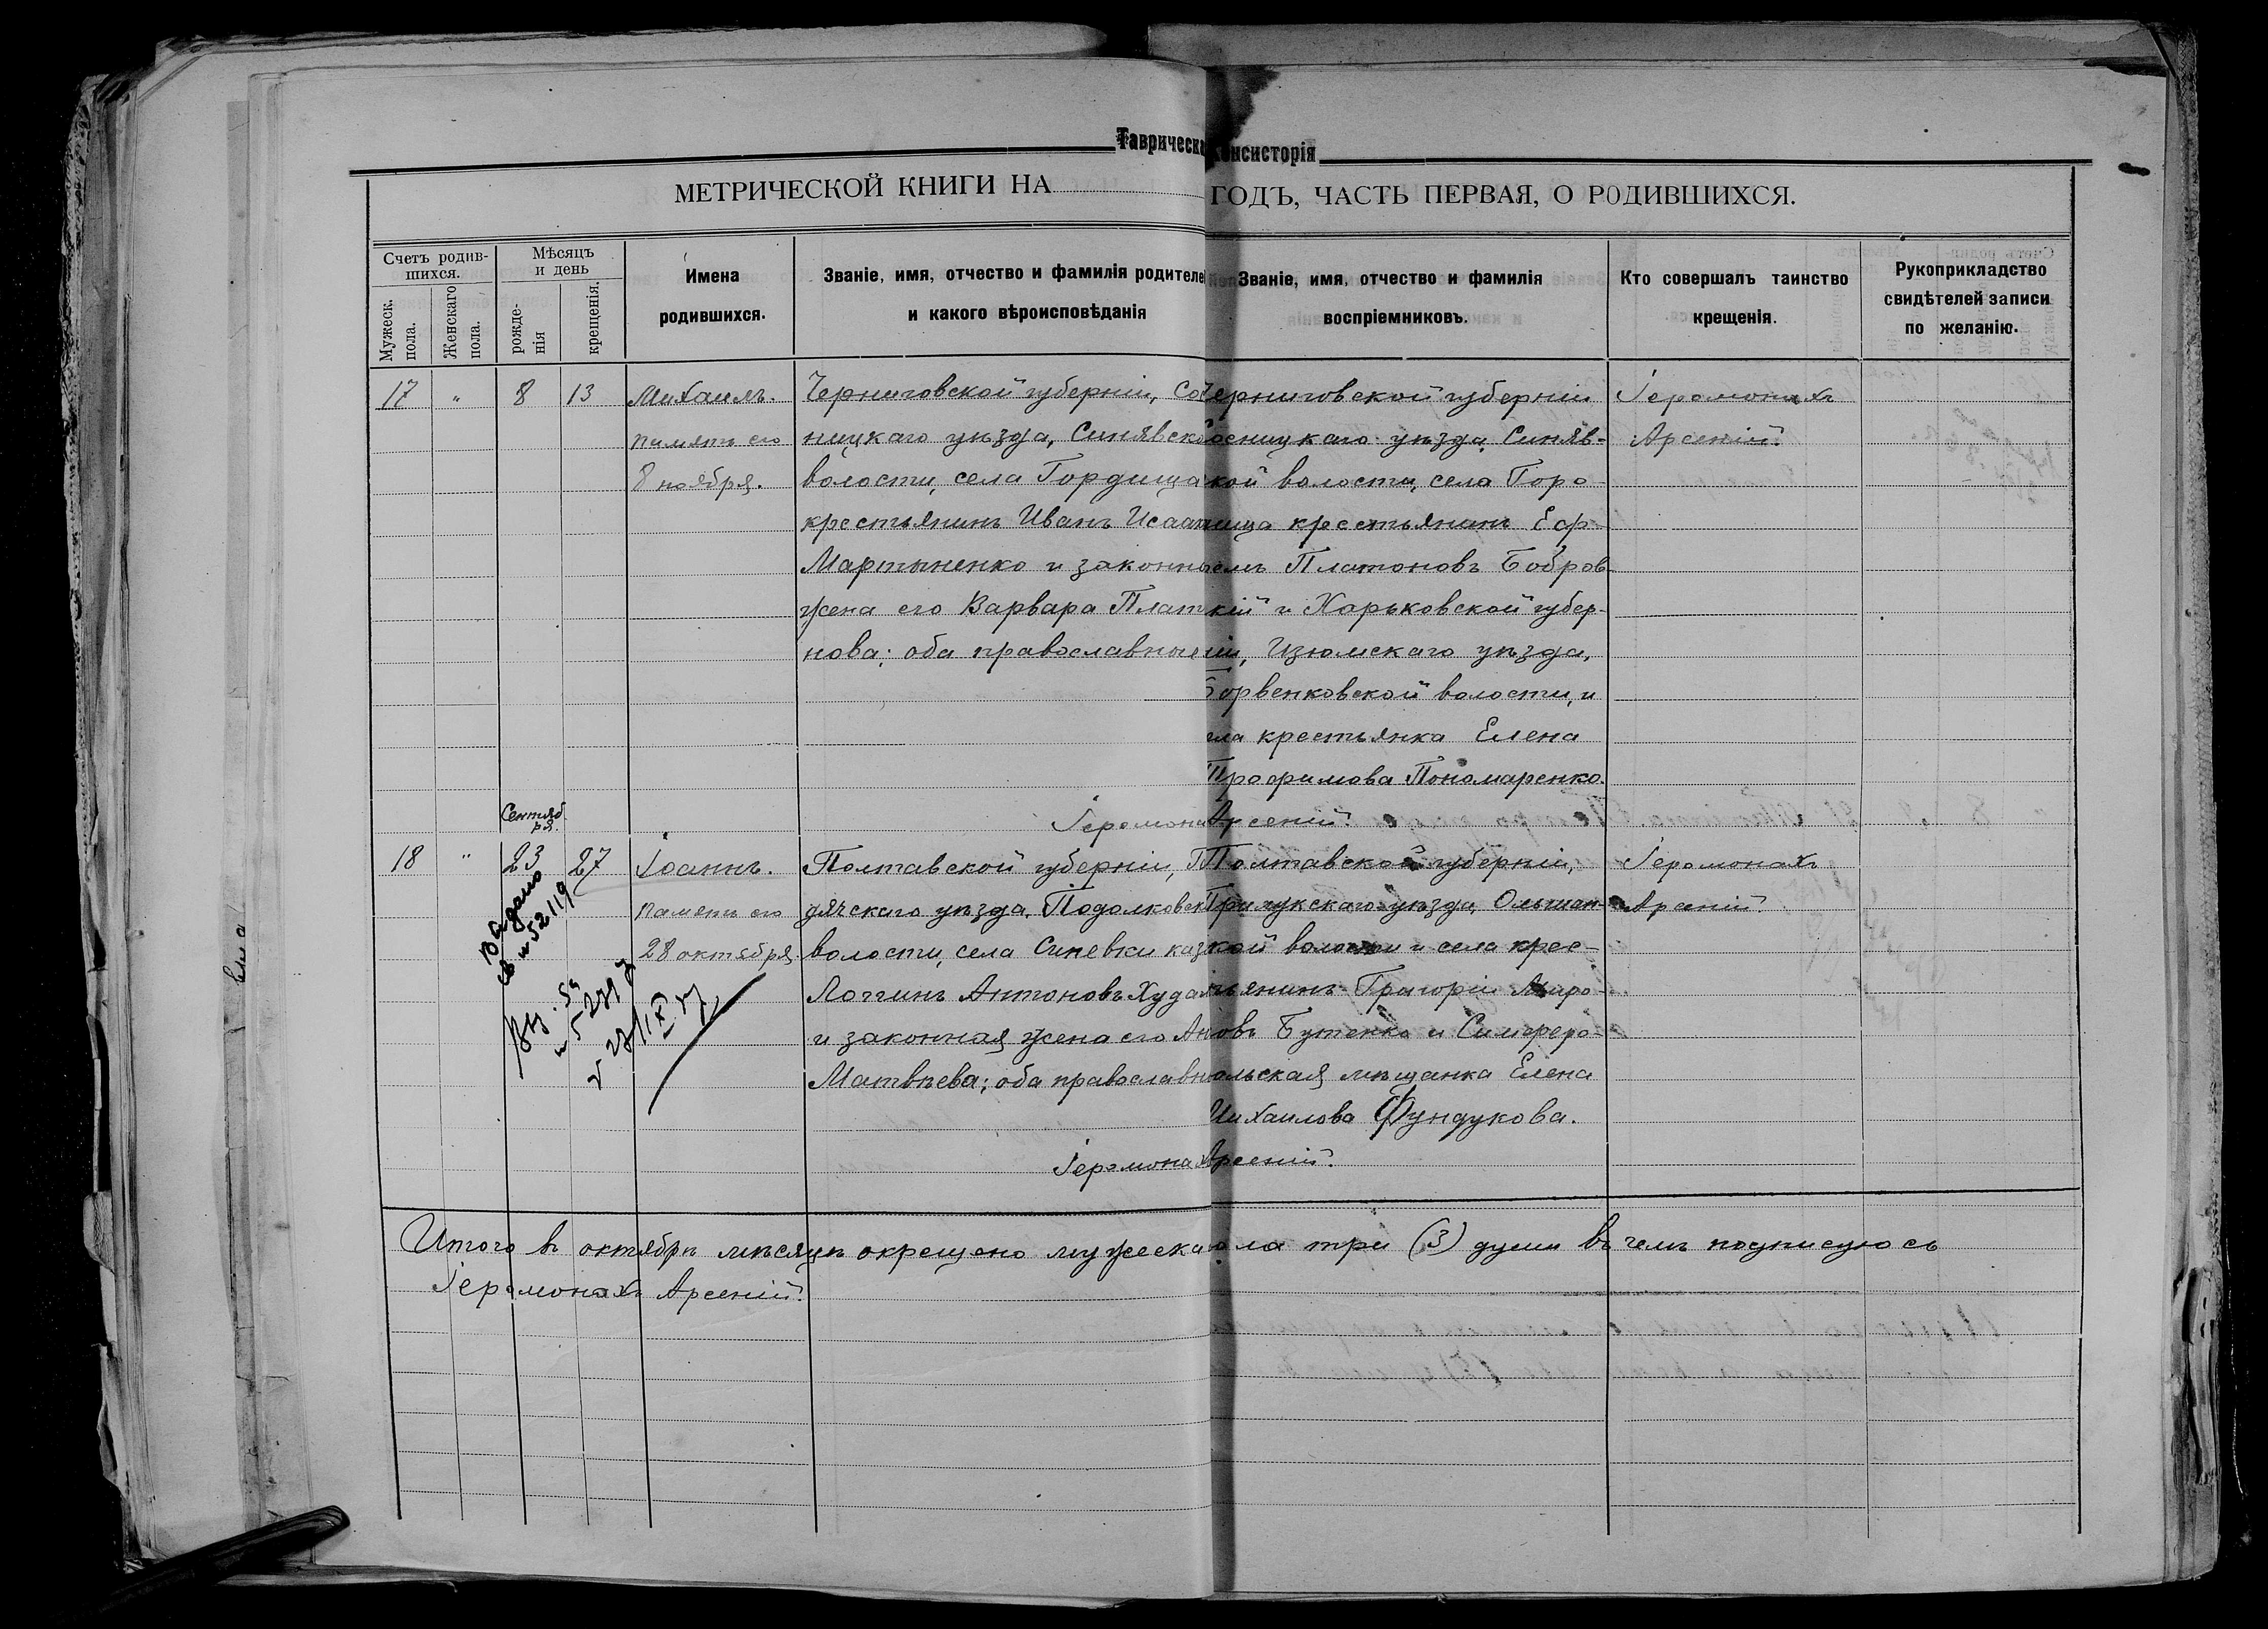 Таврическа Консисторія
МЕТРИЧЕСКОЙ КНИГИ НА ГОДЪ, ЧАСТЬ ПЕРВАЯ, О РОДИВШИХСЯ.
Счетъ родив-
шихся.
Мужеск. пола.
Женскаго пола.
Мѣсяцъ
и день
рожде-
нія
крещенія.
Имена
родившихся.
Званіе, имя, отчество и фамилія родителей
и какого вѣроисповѣданія
Званіе, имя, отчество и фамилія
воспріемниковъ.
Кто совершалъ таинство
крещенія.
Рукоприкладство
свидѣтелей записи
по желанію.
17 " 8 13
Михаилъ.
память его
8 ноября.
Черниговской губерніи, Со
ницкаго уѣзда, Синявско
волости, села Гордища
крестьянинъ Иванъ Исаа
Мартыненко и законн
жена его Варвара Плат
нова; оба православные
Черниговской губерніи
осницкаго уѣзда, Синяв-
кой волости, села Горо-
ища крестьянинъ Еф-
емъ Платоновъ Бобров-
кій и Харьковской губер-
ніи, Изюмскаго уѣзда,
Борвенковской волости, и
ела крестьянка Елена
Трофимова Пономаренко.
Іеромонахъ
Арсеній.
Іеромона Арсеній.
Сентяб
ря.
18 " 23 27
Іоаннъ.
память его
28 октября.
Полтавской губерніи, Г
дячскаго уѣзда, Подолковск
волости, села Синевки каз
Логгинъ Антоновъ Худа
и законная жена его Ан
Матвѣева; оба православн
Полтавской губерніи,
Прилукскаго уѣзда, Ольшан-
кой волости и села крес-
тьянинъ Григорій Миро-
новъ Бутенко и Симферо-
ольская мѣщанка Елена
Михаилова Фундукова.
Іеромонахъ
Арсеній.
Выдано
Іеромонах Арсеній.
Итого въ октябрѣ мѣсяцѣ окрещено мужеска ола три (3) души въ чемъ подписуюсь
Іеромонахъ Арсеній.